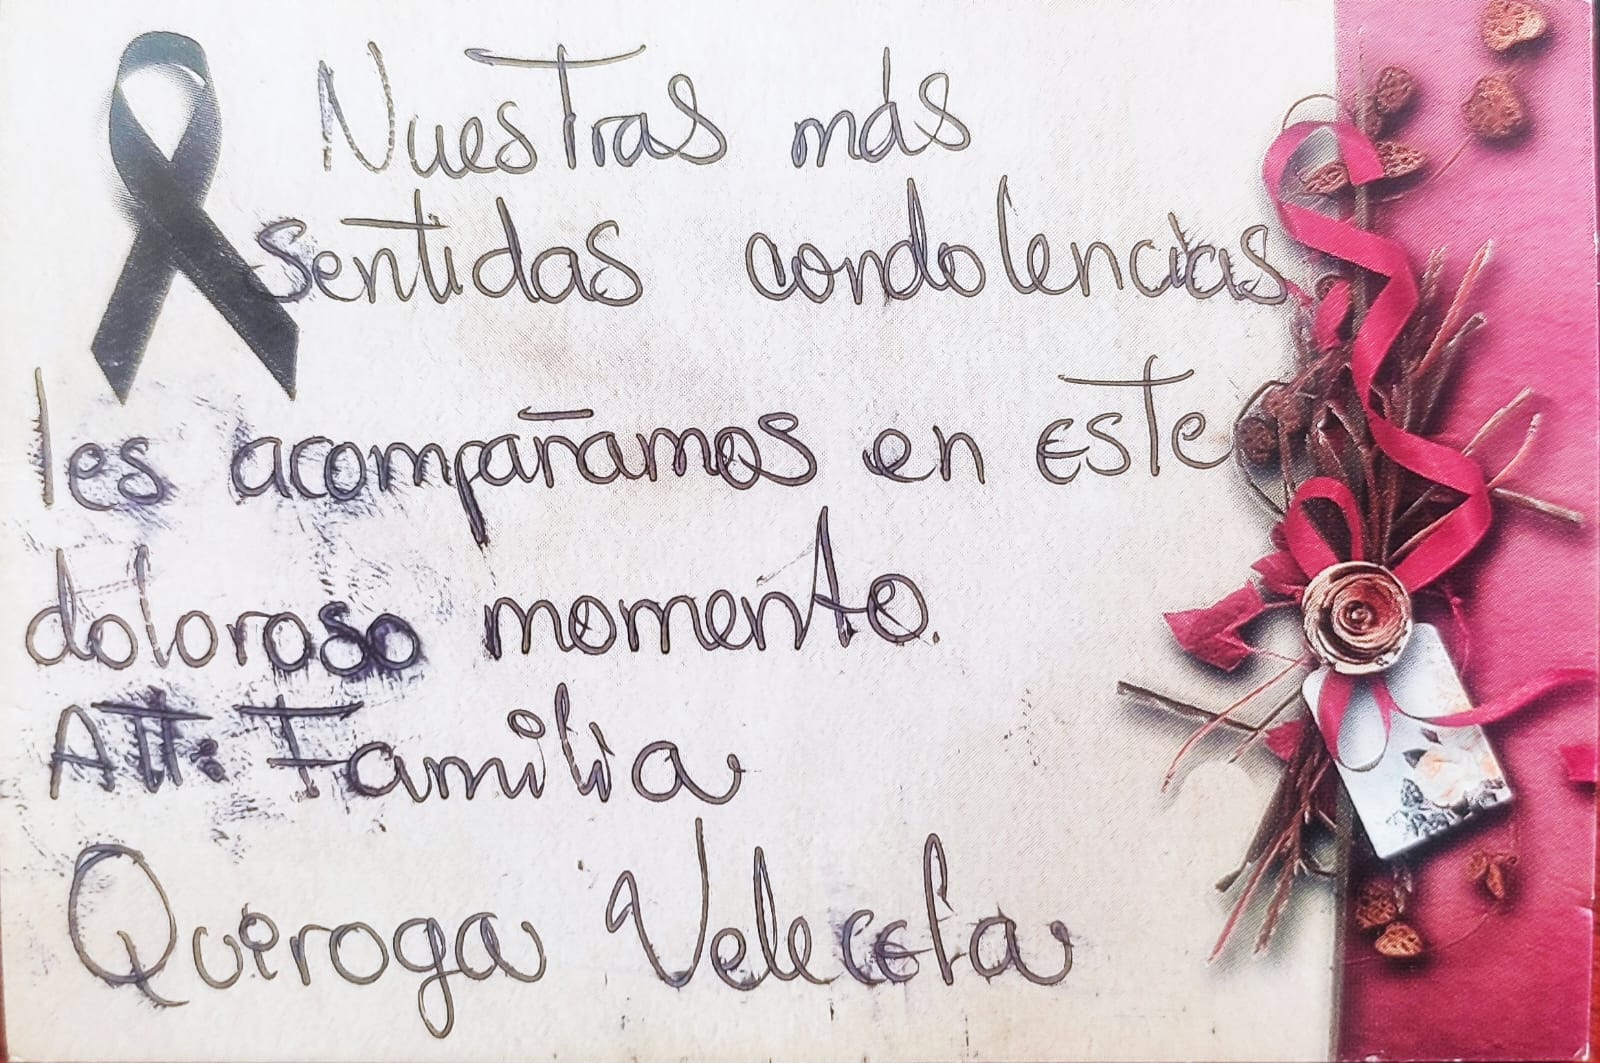 Nuestras más
sentidas condolencias
les acompañamos en este
doloroso momento.
Att: Familia
Quiroga Velecela